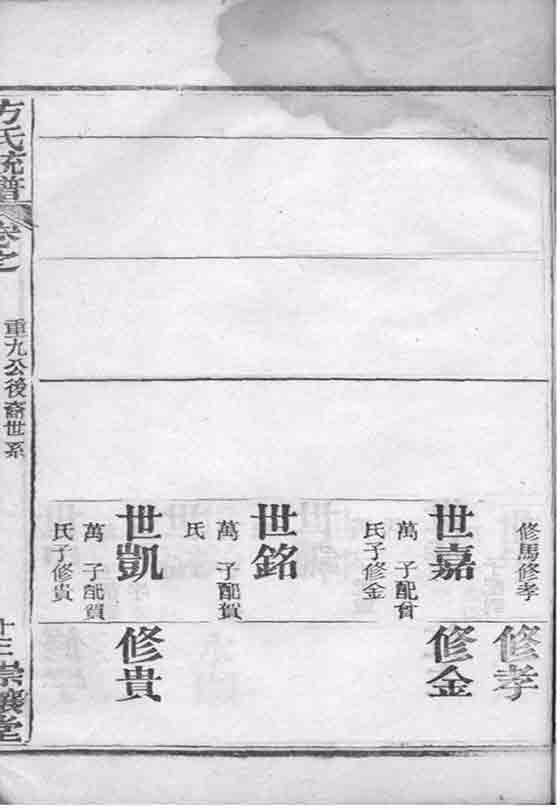 修馬修孝
世嘉
萬 子配
氏子修金
世銘
萬 子配賀
氏
世凱
萬 子配賀
氏子修貴
修孝
修金
修貴
方氏統譜
卷之
重九公後裔世系
十三
堂